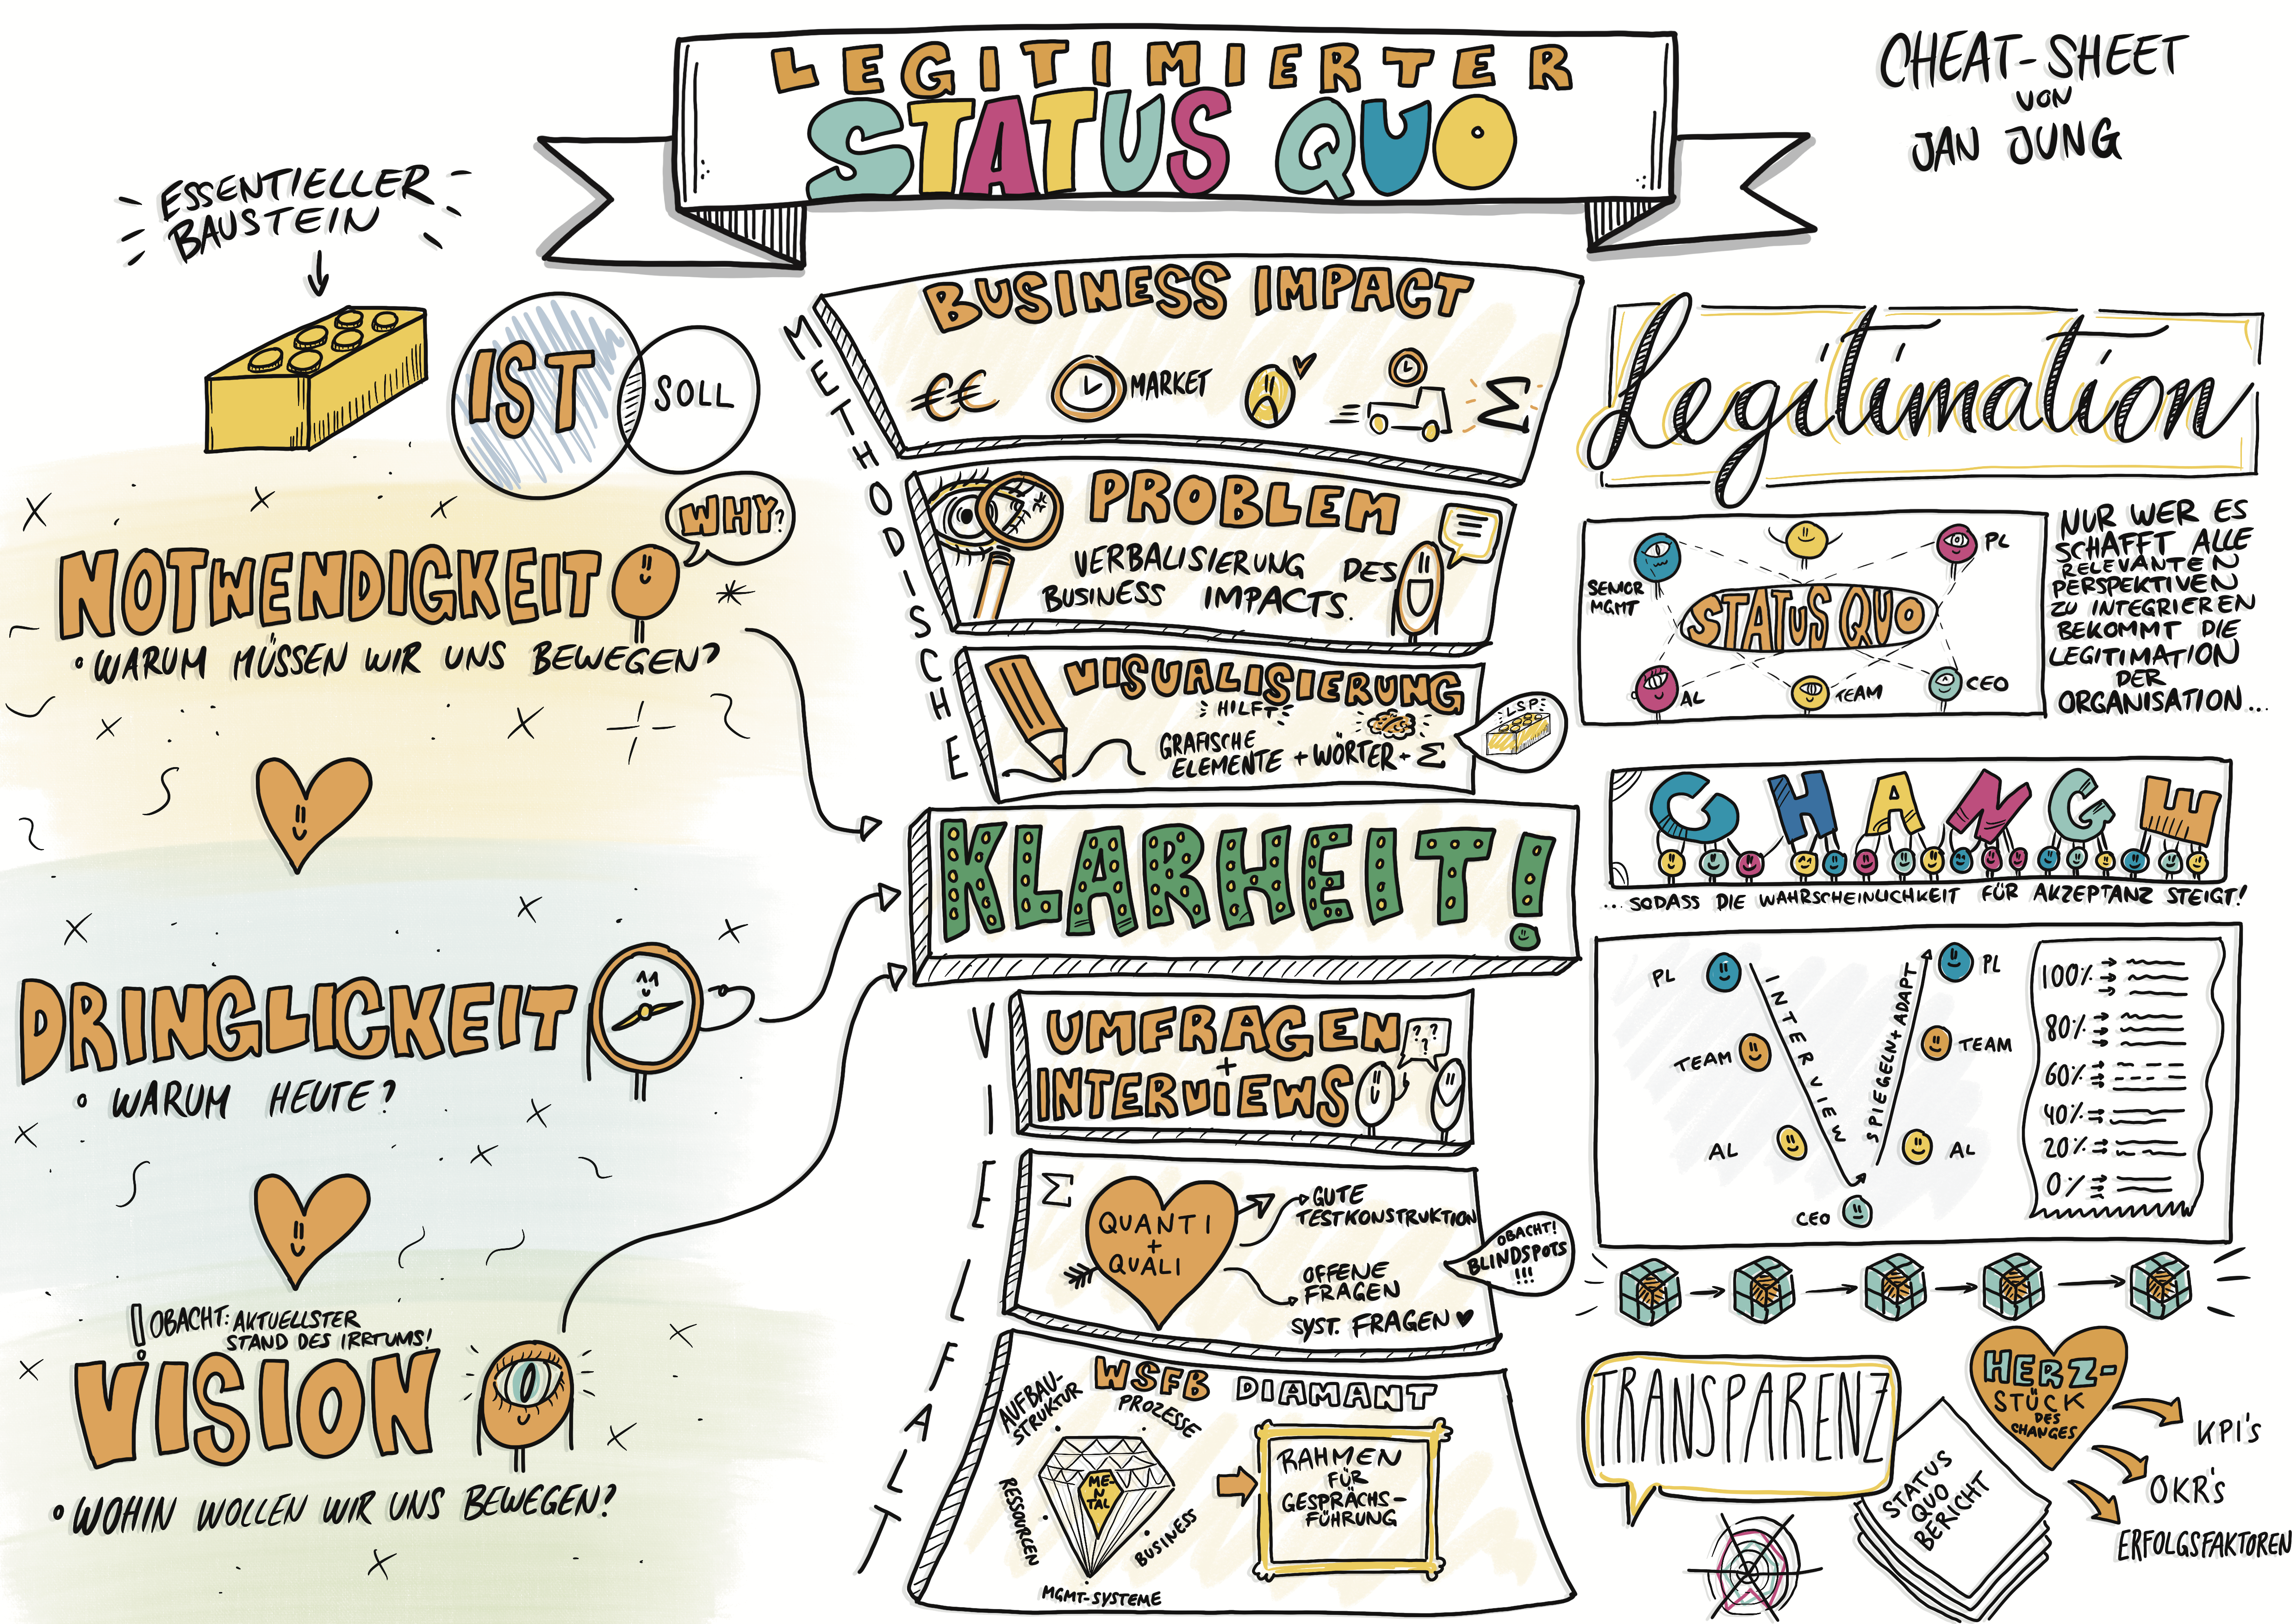 LEGITIMIERTER
STATUS QUO
CHEAT-SHEET
VON
JAN JUNG
ESSENTIELLER
BAUSTEIN
IST
SOLL
WHY?
NOTWENDIGKEIT
• WARUM MÜSSEN WIR UNS BEWEGEN?
DRINGLICKEIT
• WARUM HEUTE?
! OBACHT: AKTUELLSTER
STAND DES IRRTUMS!
VISION
• WOHIN WOLLEN WIR UNS BEWEGEN?
METHODISCHE
VIELFALT
BUSINESS IMPACT
€€
MARKET
Σ
PROBLEM
VERBALISIERUNG DES
BUSINESS IMPACTS.
VISUALISIERUNG
HILFT
GRAFISCHE
ELEMENTE + WÖRTER + Σ
LSP
KLARHEIT!
UMFRAGEN
+
INTERVIEWS
? ?
?
Σ
QUANTI
+
QUALI
GUTE
TESTKONSTRUKTION
OFFENE
FRAGEN
SYST. FRAGEN ♥
OBACHT!
BLINDSPOTS
!!!
WSFB DIAMANT
AUFBAU-
STRUKTUR
PROZESSE
RESSOURCEN
ME-
N
TAL
BUSINESS
MGMT-SYSTEME
RAHMEN
FÜR
GESPRÄCHS-
FÜHRUNG
Legitimation
SENIOR
MGMT
PL
STATUS QUO
AL
TEAM
CEO
NUR WER ES
SCHAFFT ALLE
RELEVANTEN
PERSPEKTIVEN
ZU INTEGRIEREN
BEKOMMT DIE
LEGITIMATION
DER
ORGANISATION...
CHANGE
... SODASS DIE WAHRSCHEINLICHKEIT FÜR AKZEPTANZ STEIGT!
PL
TEAM
AL
CEO
INTERVIEW
SPIEGELN + ADAPT
PL
TEAM
AL
100%
80%
60%
40%
20%
0%
TRANSPARENZ
STATUS
QUO
BERICHT
HERZ-
STÜCK
DES
CHANGES
KPI's
OKR's
ERFOLGSFAKTOREN